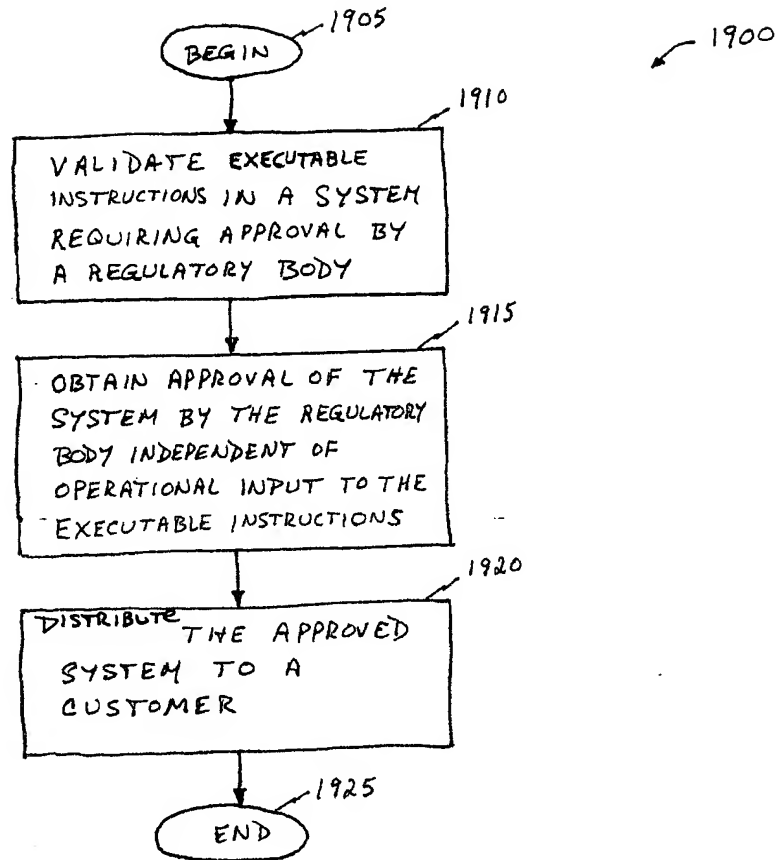 1905
BEGIN
1900
1910
VALIDATE EXECUTABLE
INSTRUCTIONS IN A SYSTEM
REQUIRING APPROVAL BY
A REGULATORY BODY
1915
OBTAIN APPROVAL OF THE
SYSTEM BY THE REGULATORY
BODY INDEPENDENT OF
OPERATIONAL INPUT TO THE
EXECUTABLE INSTRUCTIONS
1920
DISTRIBUTE THE APPROVED
SYSTEM TO A
CUSTOMER
1925
END